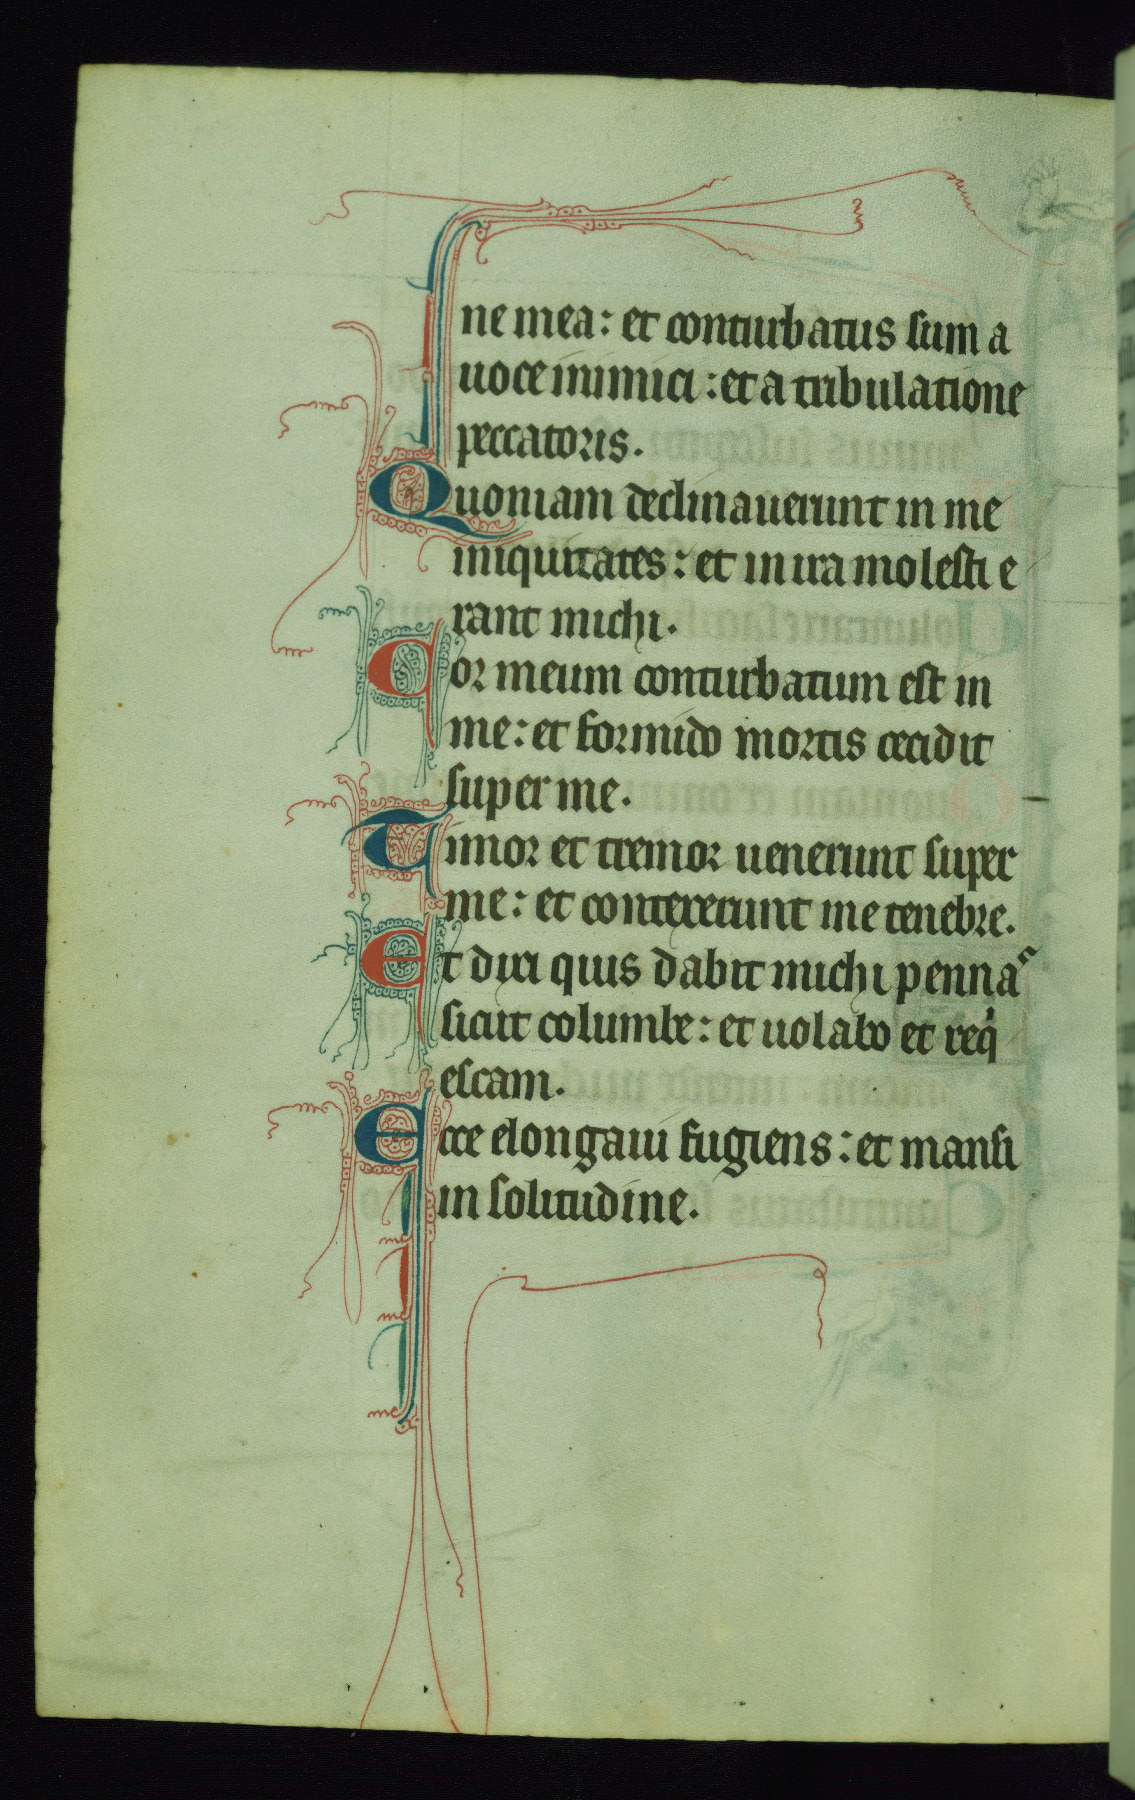 ne mea: et conturbatus sum a
uoce inimici: et a tribulatione
peccatoris.
Quoniam declinauerunt in me
iniquitates: et in ira molesti e
rant michi.
Cor meum conturbatum est in
me: et formido mortis cecidit
super me.
Timor et tremor uenerunt super
me: et contexerunt me tenebre.
Et dixi quis dabit michi pennas
sicut columbe: et uolabo et req
escam.
Ecce elongaui fugiens: et mansi
in solitudine.